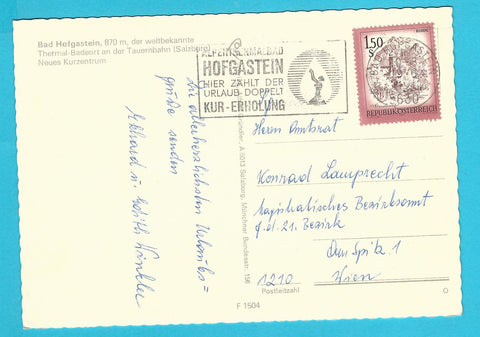 Bad Hofgastein, 870 m, der weltbekannte
Thermal-Badeort an der Tauernbahn (Salzburg)
Neues Kurzentrum
ALPENTHERMALBAD
HOFGASTEIN
HIER ZÄHLT DER
URLAUB DOPPELT
KUR-ERHOLUNG
1.50
S
REPUBLIK ÖSTERREICH
5630
Die allerherzlichsten Urlaubs=
grüße senden
u. Edith Winkler
A 5013 Salzburg, Münchner Bundesstr. 156
Herrn Amtsrat
Konrad Lamprecht
Magistratisches Bezirksamt
f. d. 21. Bezirk
Am Spitz 1
1210 Wien
Postleitzahl
F 1504